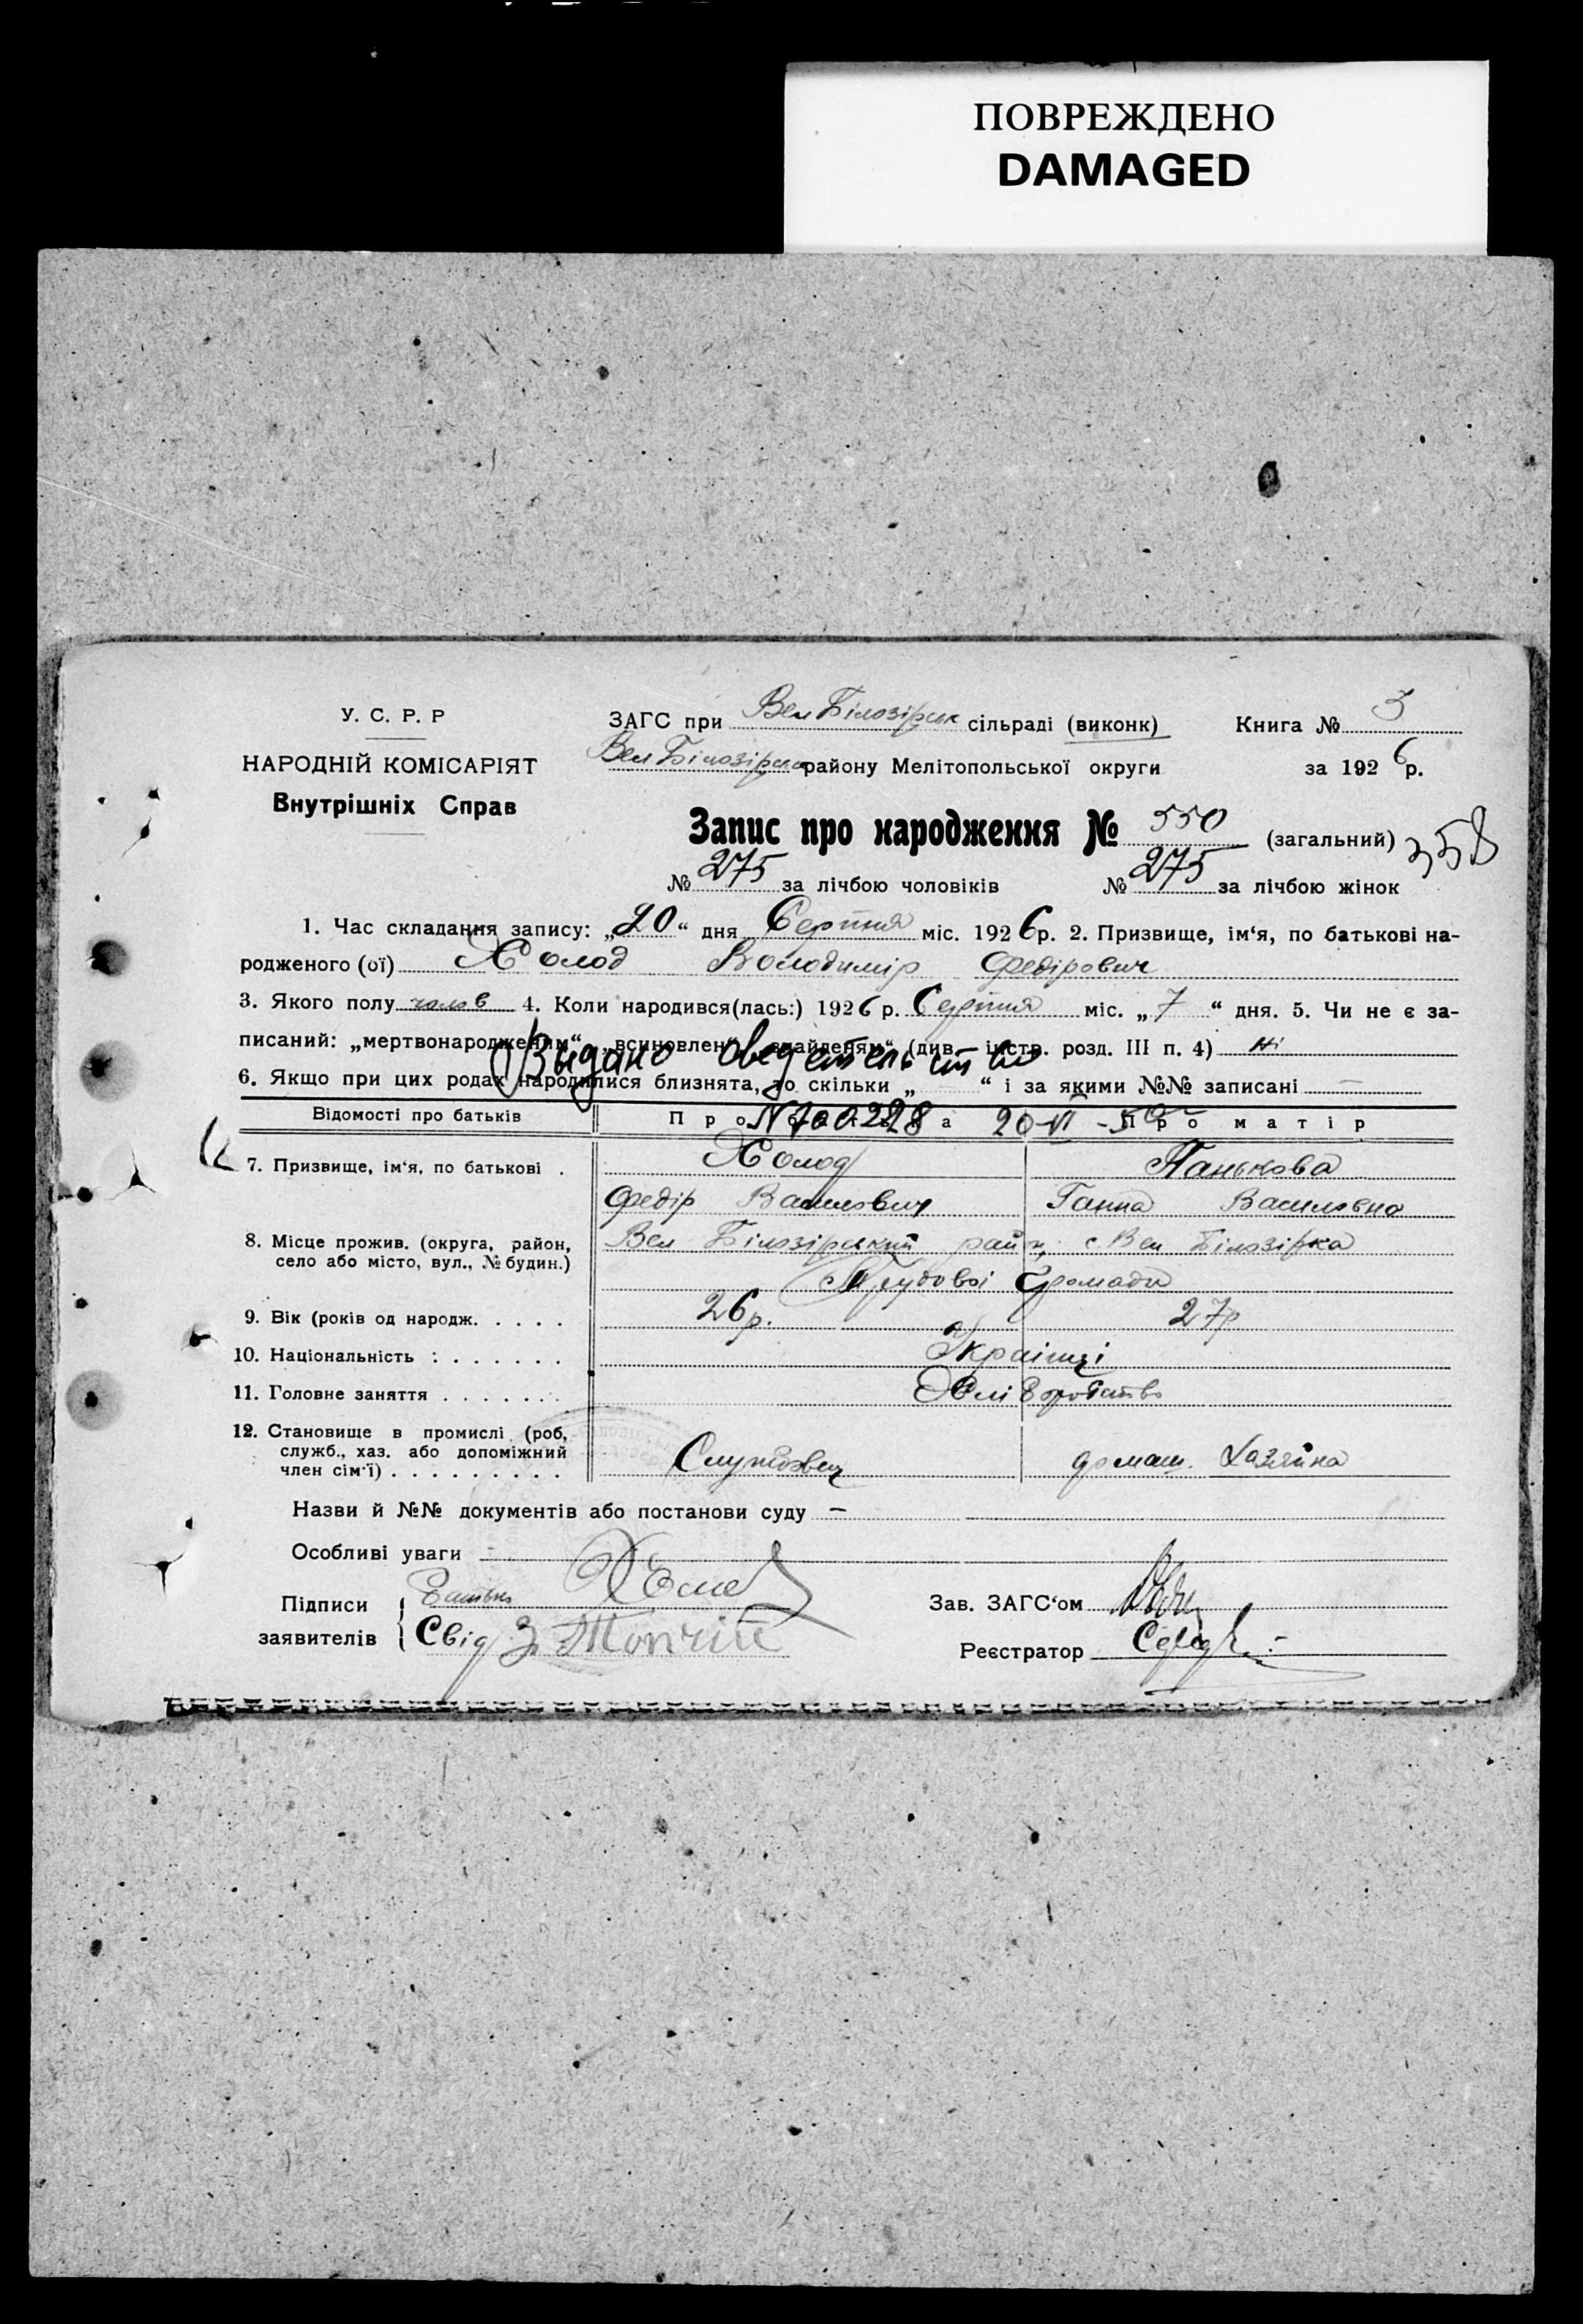 ПОВРЕЖДЕНО
DAMAGED
У. С. Р. Р
НАРОДНІЙ КОМІСАРІЯТ
Внутрішніх Справ
ЗАГС при Вел Білозірськ сільраді (виконк) Книга № 3
Вел Білозірськ району Мелітопольської округи за 1926 р.
Запис про народження № 550 (загальний) 358
№ 275 за лічбою чоловіків № 275 за лічбою жінок
1. Час складання запису: „20“ дня Серпня міс. 1926 р. 2. Призвище, ім‘я, по батькові на-
родженого (ої) Холод Володимір Федірович
3. Якого полу чолов 4. Коли народився(лась:) 1926 р. Серпня міс. „7“ дня. 5. Чи не є за-
писаний: „мертвонародженим“, „всиновленим“, „знайденям“ (див. інстр. розд. III п. 4) ні
Выдано сведетельство
6. Якщо при цих родах народилися близнята, то скільки „ — “ і за якими №№ записані —
Відомості про батьків Про батька Про матір
N 700228 20-VI-
7. Призвище, ім‘я, по батькові . Холод Панькова
Федір Василович Ганна Василовна
8. Місце прожив. (округа, район, село або місто, вул., № будин.) Вел Білозірський район, с. Вел Білозірка
Трудової Громади
9. Вік (років од народж. . . . . 26 р. 27 р
10. Національність : . . . . . . Українці
11. Головне заняття . . . . . . . Хліборобство
12. Становище в промислі (роб, служб., хаз. або допоміжний член сім‘ї) . . . . . . . . . Службовец домаш. Хазяйка
Назви й №№ документів або постанови суду —
Особливі уваги —
Підписи заявителів { Батько
Свід
Зав. ЗАГС‘ом
Реєстратор